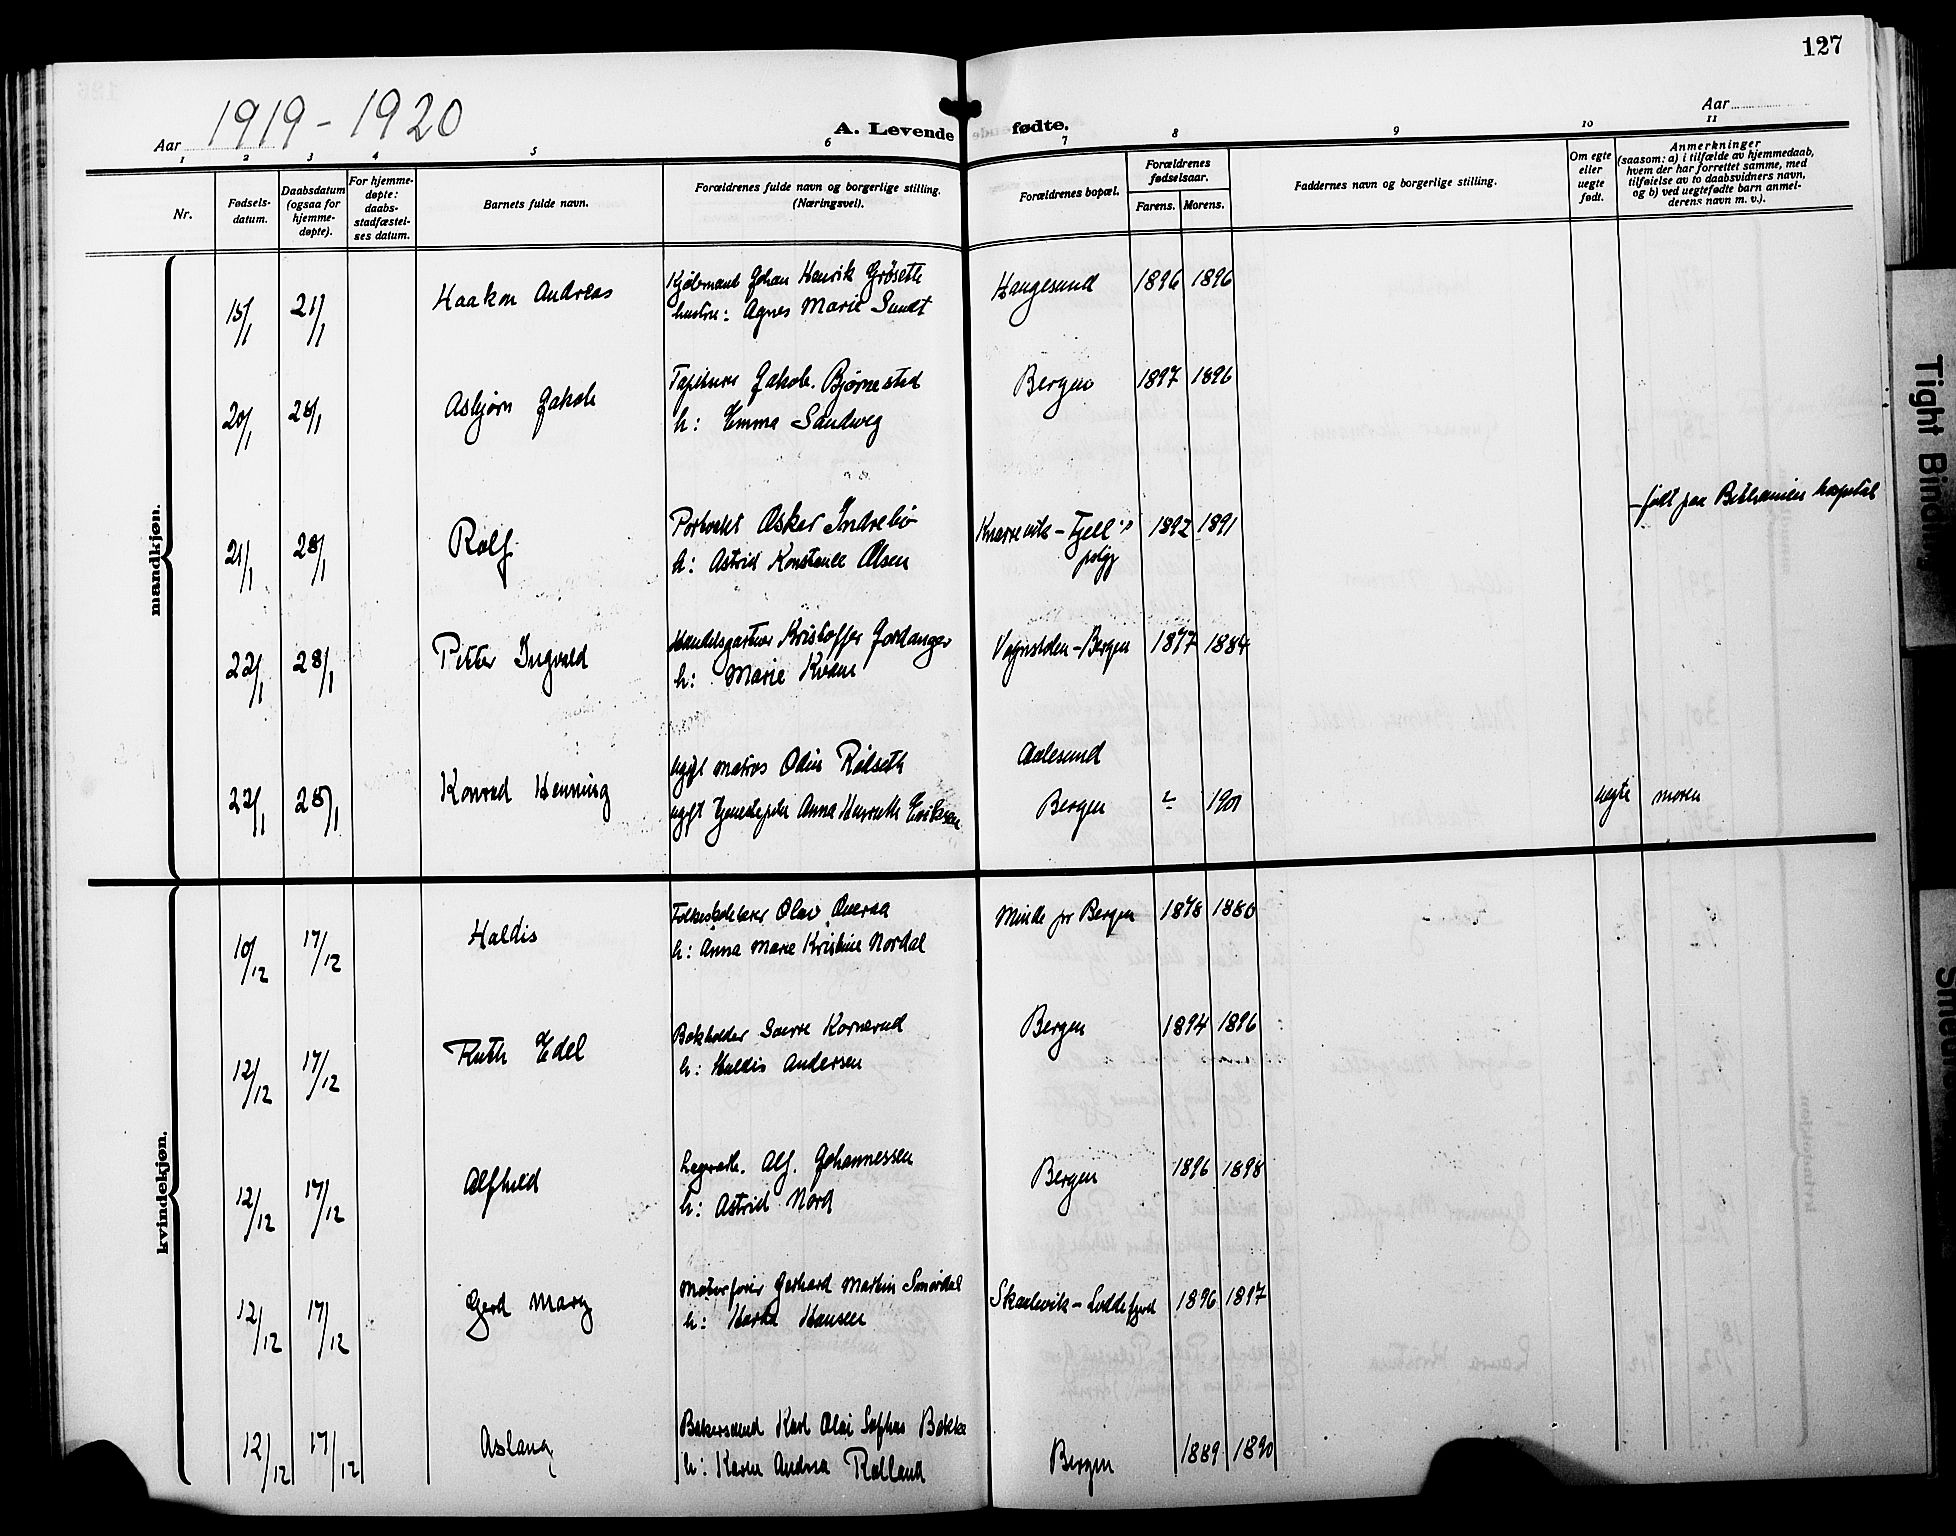 127
Aar 1919-1920
A. Levende fødte.
Aar
1 2 3 4 5 6 7 8 9 10 11
Nr.
Fødsels-
datum.
Daabsdatum
(ogsaa for
hjemme-
døpte).
For hjemme-
døpte:
daabs-
stadfæstel-
ses datum.
Barnets fulde navn.
Forældrenes fulde navn og borgerlige stilling.
(Næringsvei).
Forældrenes bopæl.
Forældrenes
fødselsaar.
Farens. Morens.
Faddernes navn og borgerlige stilling.
Om egte
eller
uegte
født.
Anmerkninger
(saasom: a) i tilfælde av hjemmedaab,
hvem der har forrettet samme, med
tilføielse av to daabsvidners navn,
og b) ved uegtefødte barn anmel-
derens navn m. v.).
mandkjøn.
15/1 21/1 Haakon Andreas Johan Henrik Grøseth Haugesund 1896 1896
hustru: Agnes Marie Sundt
20/1 28/1 Asbjørn Jakob Jakob Bjørnestad Bergen 1897 1896
h: Emma Sandveg
født paa Bethanien hospital
21/1 28/1 Rolf Oskar Indrebø Knarrevik - Fjell 1892 1891
h: Astrid Konstance Olsen
22/1 28/1 Petter Ingvald Handelsgartner Kristoffer Jordanger -Bergen 1877 1884
h: Marie Kvam
ugift matros Odin Rødseth Aalesund
22/1 28/1 Konrad Henning ugift Anna Henriette Eriksen Bergen ? 1901 uegte moren
kvindekjøn.
10/12 17/12 Haldis Folkeskolelærer Olav Minde pr Bergen 1878 1880
h: Anna Marie Kristine Nordal
12/12 17/12 Ruth Edel Bokholder Sverre Kornerud Bergen 1894 1896
h: Haldis Andersen
12/12 17/12 Alfhild Lagerarb. Alf. Johannessen Bergen 1896 1898
h: Astrid Nord
12/12 17/12 Gerd Mary Gerhard Martin Smørdal Skaalevik - Loddefjord 1896 1897
h: Hansen
12/12 17/12 Aslaug Bakersvend Karl Olai Bakke Bergen 1889 1890
h: Karen Andrea Rolland
Tight Binding